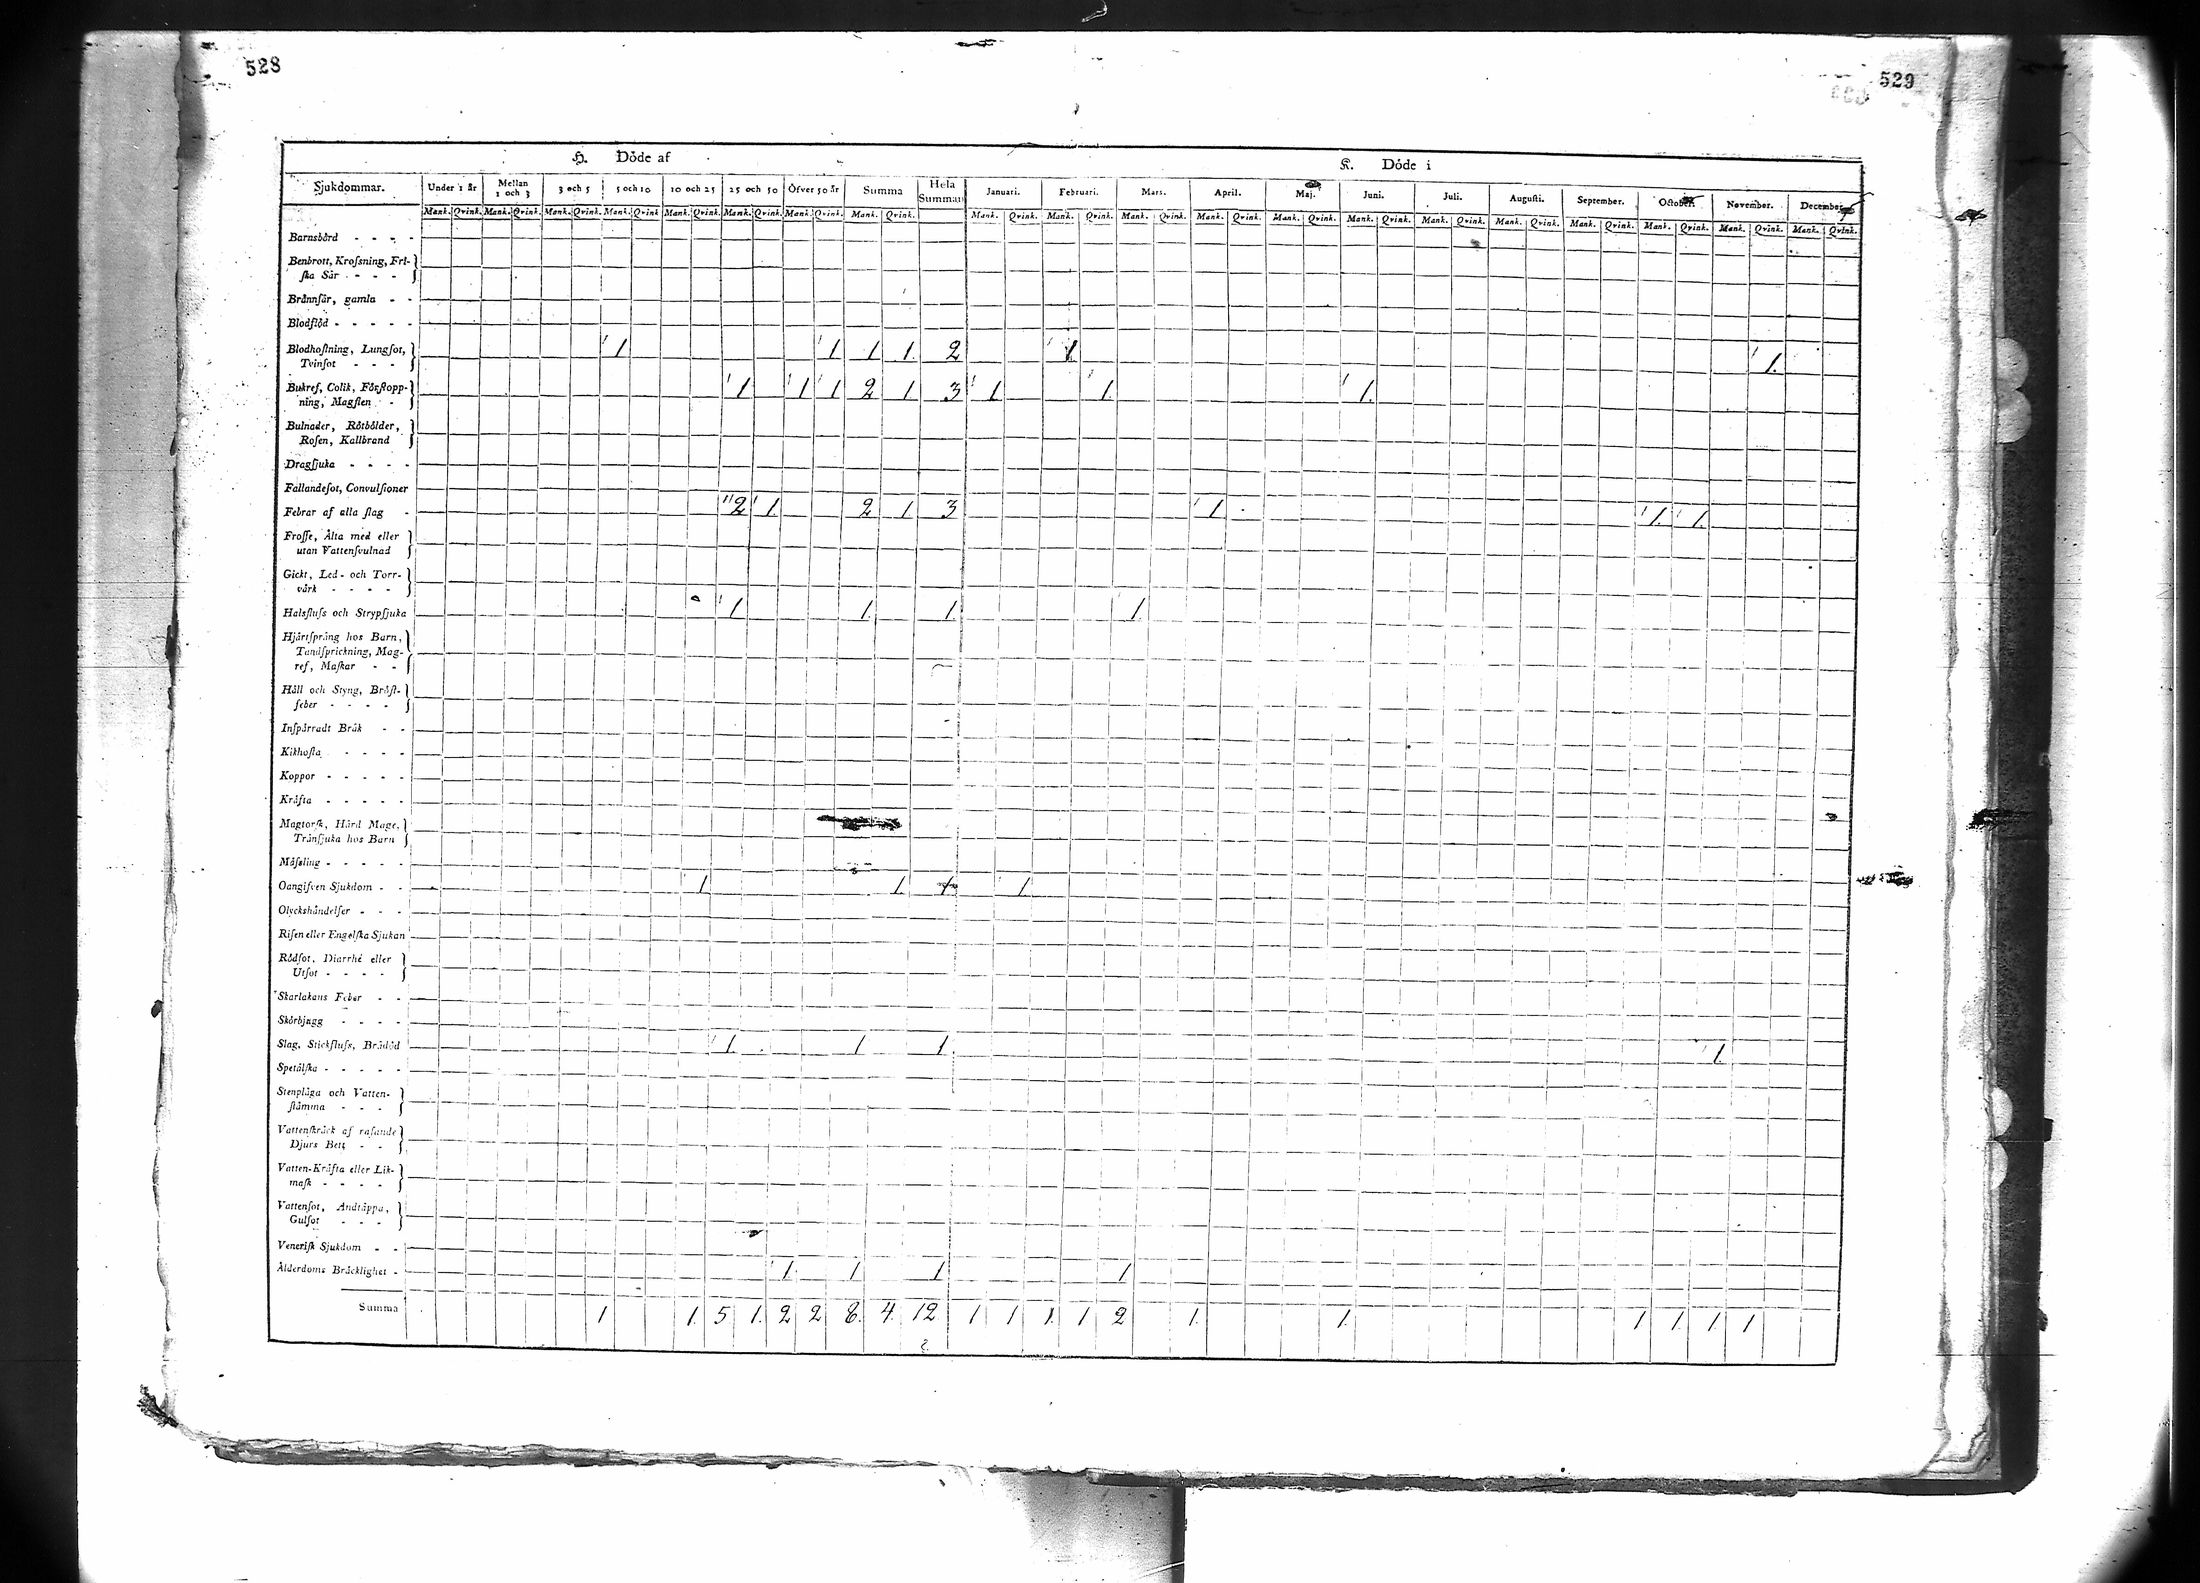 528
529
H. Döde af
K. Döde i
Sjukdommar. Under 1 år Mellan 1 och 3 3 och 5 5 och 10 10 och 25 25 och 50 Öfver 50 år Summa Hela Summan Januari. Februari. Mars. April. Maj. Juni. Juli. Augusti. September. October. November. December.
Mank. Qvink. Mank. Qvink. Mank. Qvink. Mank. Qvink Mank. Qvink. Mank. Qvink. Mank. Qvink. Mank. Qvink. Mank. Qvink. Mank. Qvink. Mank. Qvink. Mank. Qvink. Mank. Qvink. Mank. Qvink. Mank. Qvink. Mank. Qvink. Mank. Qvink. Mank. Qvink. Mank. Qvink. Mank. Qvink.
Barnsbörd - - - -
Benbrott, Krosning, Fri-
ska Sår - - -
Brännsår, gamla - -
Blodflöd - - - - -
Blodhostning, Lungsot,
Tvinsot - - - 1 1 1 1 2 1 1.
Bukref, Colik, Förstopp-
ning, Magsten - 1 1 1 2 1 3 1 1 1.
Bulnader, Rötbölder,
Rosen, Kallbrand
Dragsjuka - - - -
Fallandesot, Convulsioner
Febrar af alla slag - 2 1 2 1 3 1 1 1
Frosse, Älta med eller
utan Vattensvulnad
Gickt, Led- och Torr-
värk - - - -
Halsfluss och Strypsjuka 1 1. 1 1
Hjärtsprång hos Barn,
Tandsprickning, Mag-
ref, Maskar - -
Håll och Styng, Bröst-
feber - - - -
Inspärradt Bråk - -
Kikhosta - - - -
Koppor - - - - -
Kräfta - - - - -
Magtorsk, Hård Mage,
Tränsjuka hos Barn
Mässling - - - - -
Oangifven Sjukdom - - 1 1. 1 1
Olyckshändelser - - -
Risen eller Engelska Sjukan
Rödsot, Diarrhé eller
Utsot - - - -
Skarlakans Feber - -
Skörbjugg - - - -
Slag, Stickfluss, Brådöd 1. 1 1 1.
Spetälska - - - - -
Stenplåga och Vatten-
stämma - - -
Vattenskräck af rasande
Djurs Bett - -
Vatten-Kräfta eller Lik-
mask - - - -
Vattensot, Andtäppa,
Gulsot - - -
Venerisk Sjukdom - -
Ålderdoms Bräcklighet - 1 1 1 1
Summa 1 1. 5 1. 2 2 8. 4. 12 1 1 1. 1 2 1. 1. 1 1. 1. 1